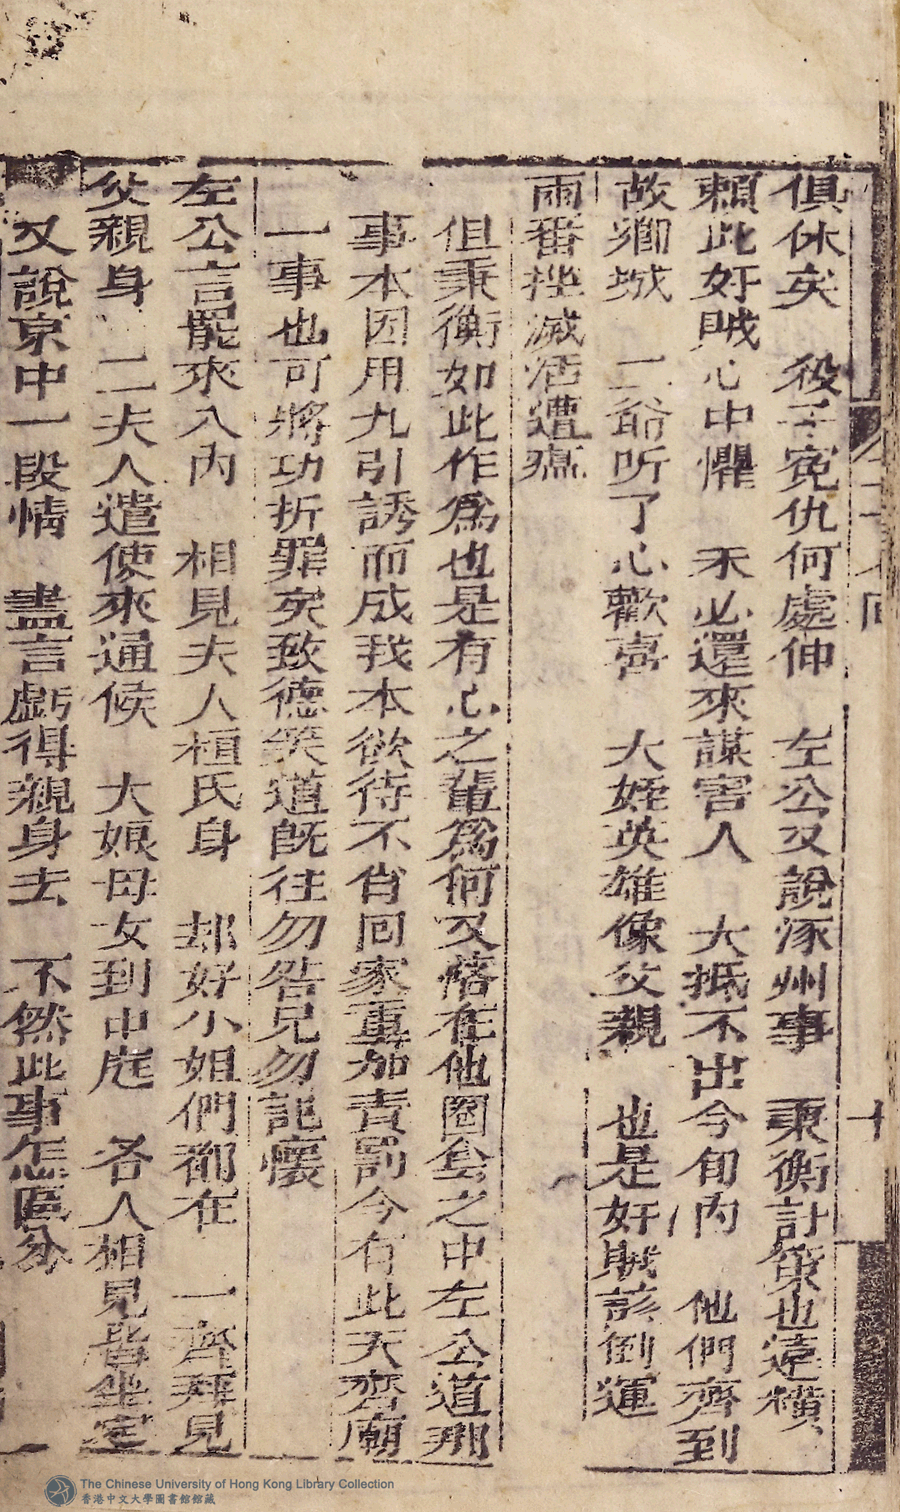 二十八回
十
俱休矣　役子寃仇何處伸　左公又說涿州事　秉衡計策也遠橫
賴此奸賊心中懼　未必還來謀害人　大抵不出今旬內　他們齊到
故鄉城　二爺听了心歡喜　大姪英雄像父親　也是奸賊該倒運
兩番挫滅活遭瘟
但秉衡如此作爲也是有心之輩爲何又落在他圈套之中左公道那
事本因用九引誘而成我本欲待不肖回家重加責罰今有此天齊廟
一事也可將功折罪矣致德笑道既往勿咎兄勿記懷
左公言罷來入內　相見夫人桓氏身　却好小姐們都在　一齊拜見
父親身　二夫人遣使來通候　大娘母女到中庭　各人相見皆坐定
又說京中一段情　盡言虧得親身去　不然此事怎區分
The Chinese University of Hong Kong Library Collection
香港中文大學圖書館館藏